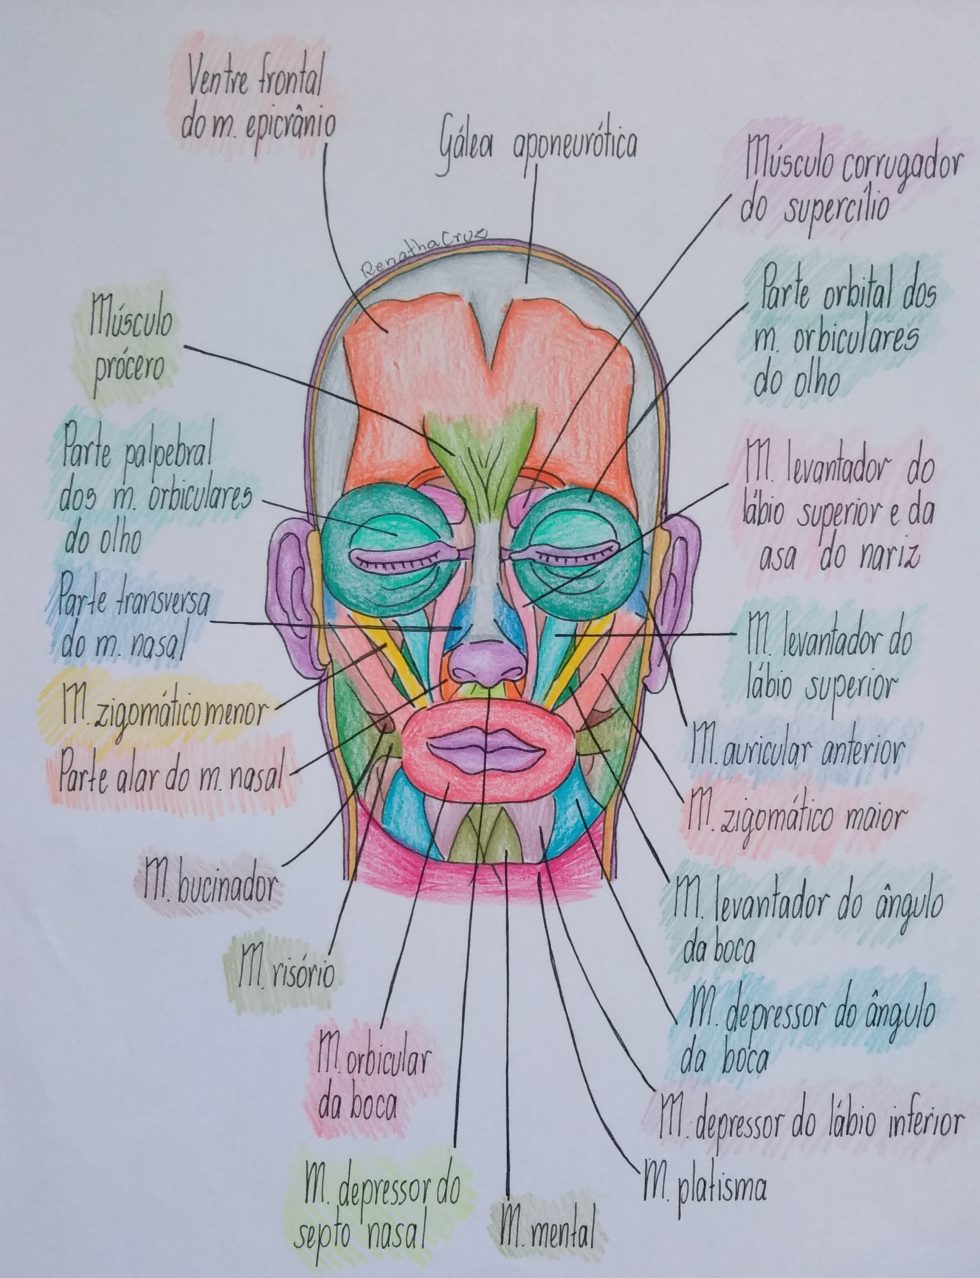 Ventre frontal
do m. epicrânio
Gálea aponeurótica
Músculo corrugador
do supercílio
Renatha Cruz
Parte orbital dos
m. orbiculares
do olho
Músculo
prócero
Parte palpebral
dos m. orbiculares
do olho
M. levantador do
lábio superior e da
asa do nariz
Parte transversa
do m. nasal
M. levantador do
lábio superior
M. zigomático menor
M. auricular anterior
Parte alar do m. nasal
M. zigomático maior
M. bucinador
M. levantador do ângulo
da boca
M. risório
M. depressor do ângulo
da boca
M. orbicular
da boca
M. depressor do lábio inferior
M. platisma
M. depressor do
septo nasal
M. mental